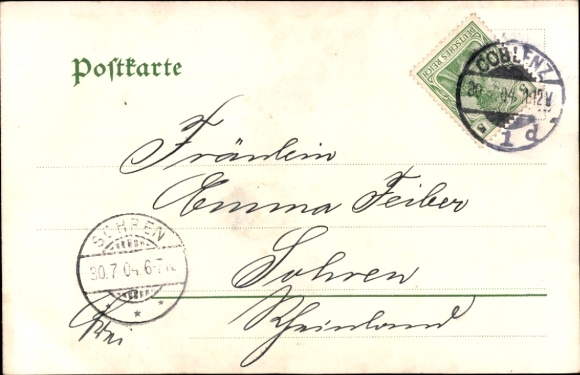 Postkarte
DEUTSCHES REICH
COBLENZ
30.7.04.11-12V
1 d
Fräulein
Emma Feiber
SOHREN
30.7.04.6-7N.
Sohren
Rheinland